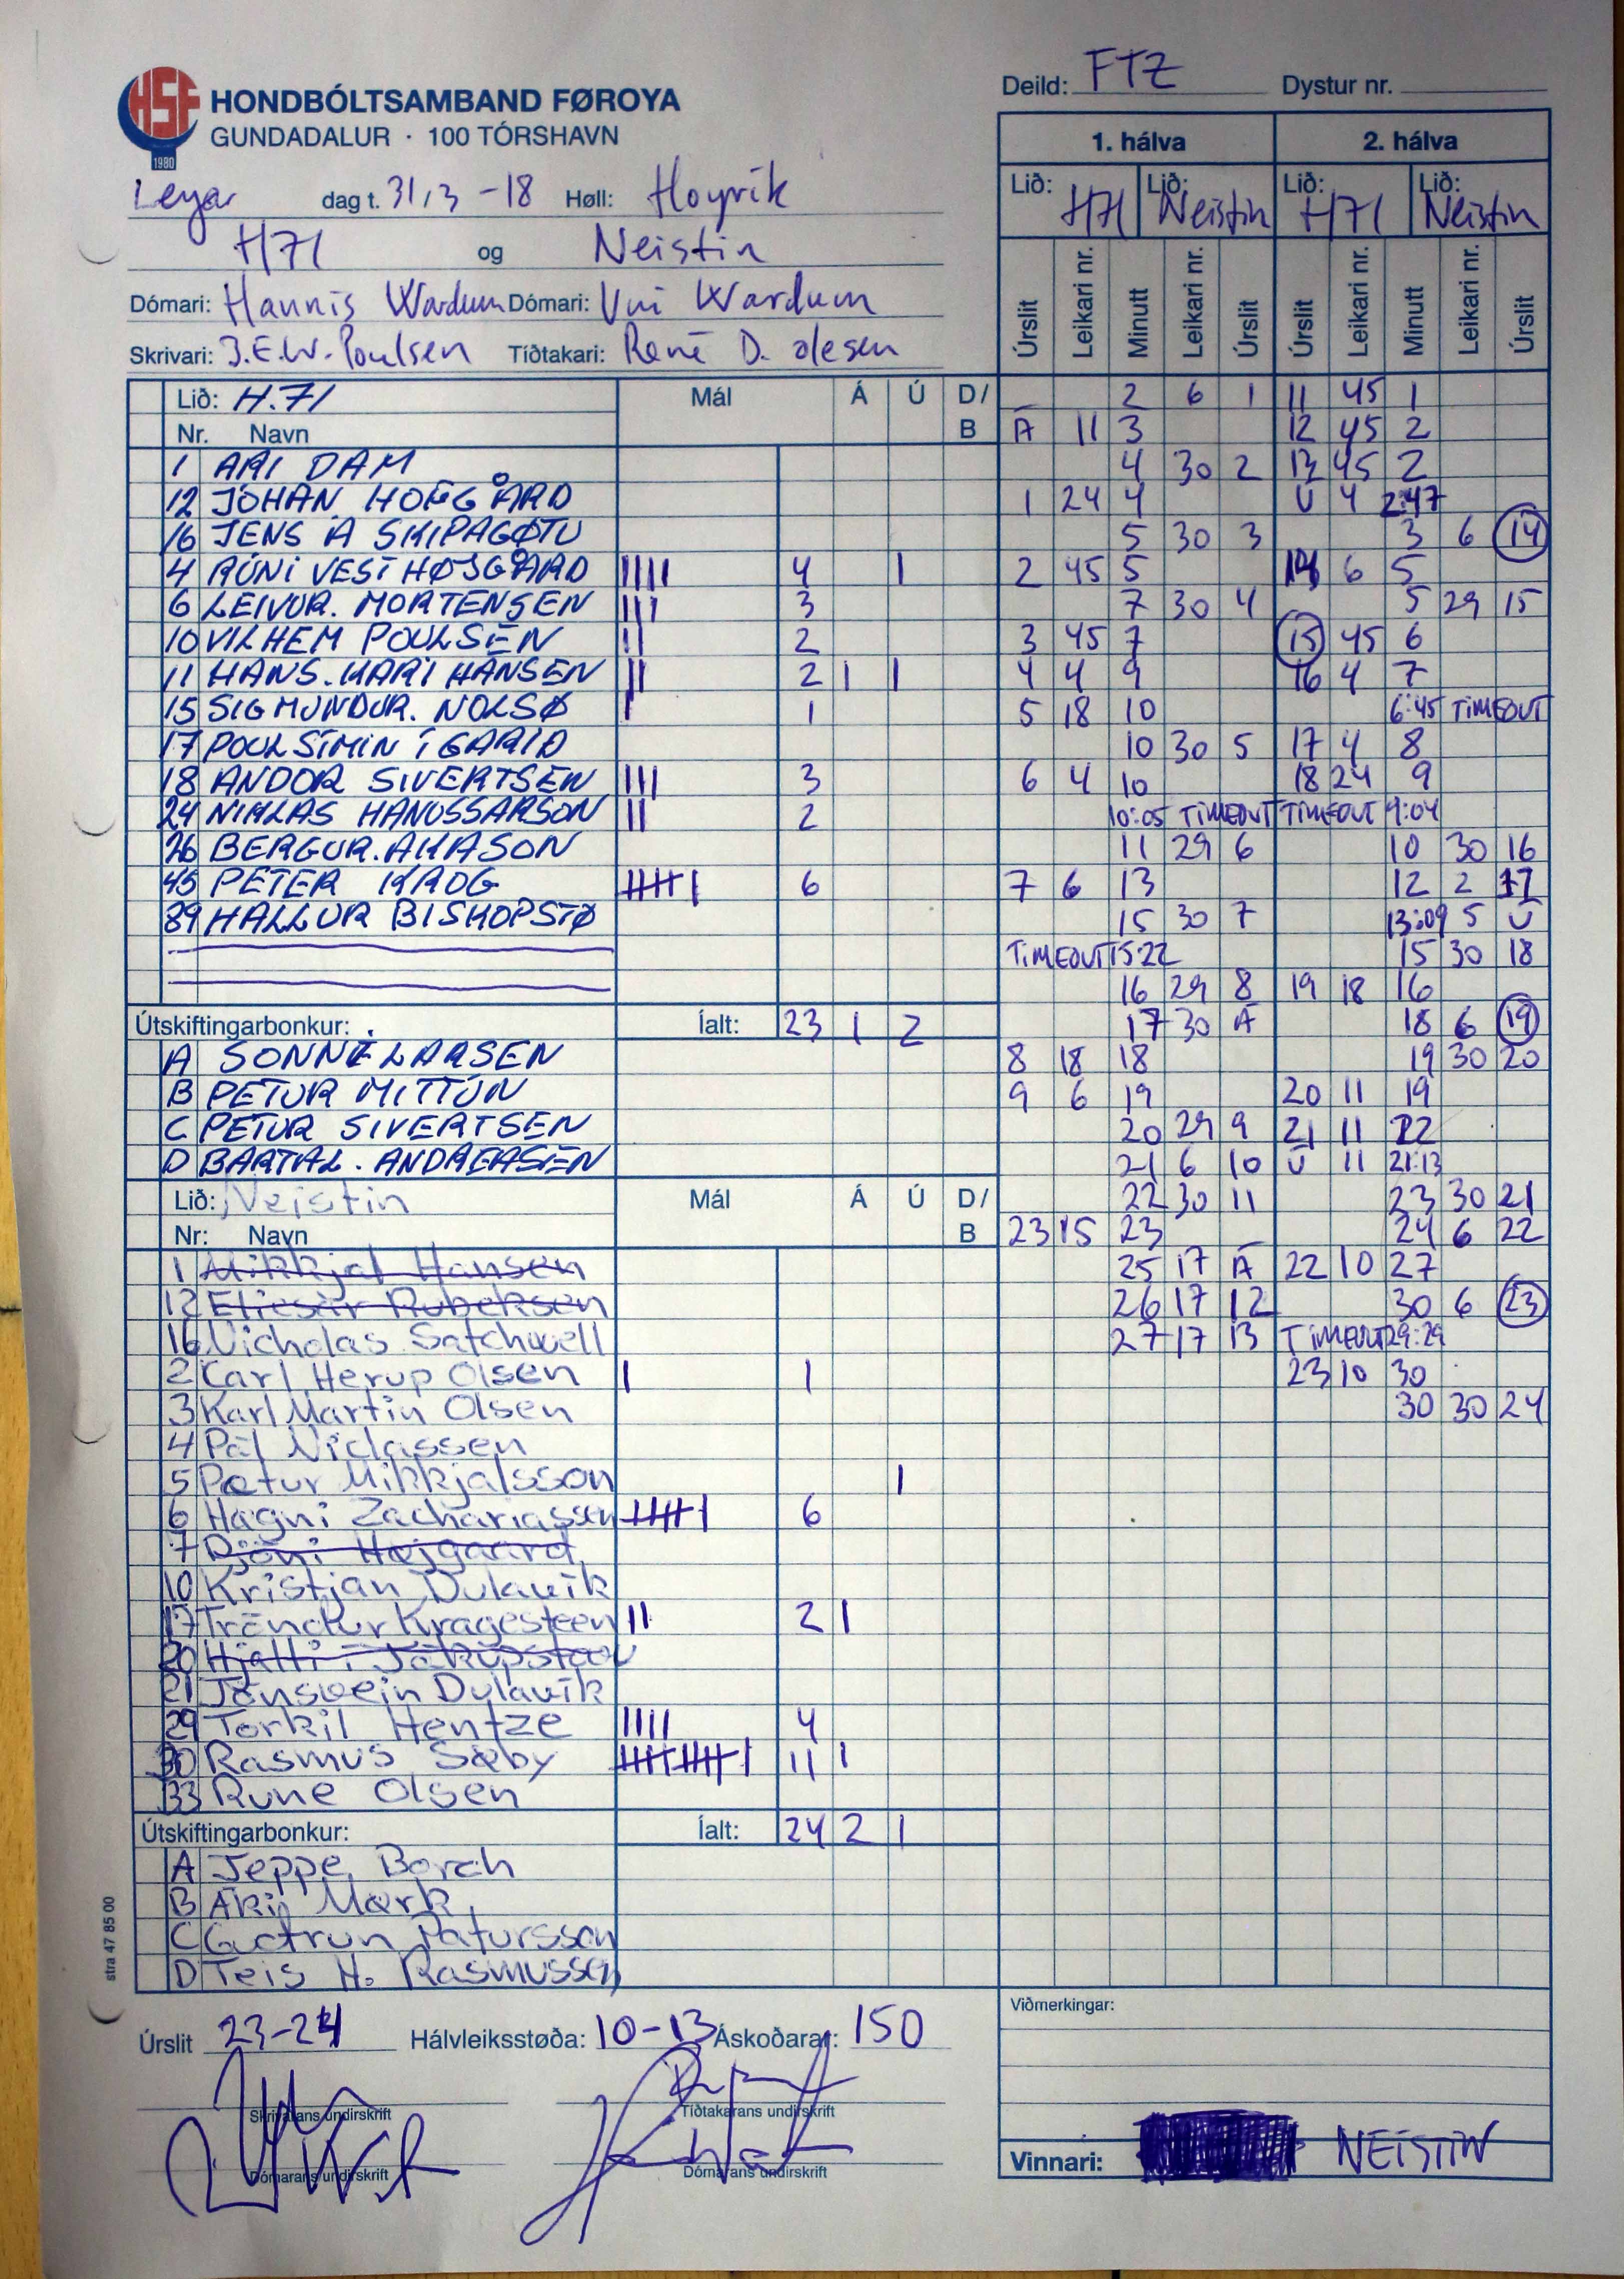 HSF
1980
HONDBÓLTSAMBAND FØROYA
GUNDADALUR · 100 TÓRSHAVN
Leyar dag t. 31/3 -18 Høll: Hoyvík
H71 og Neistin
Dómari: Hannis Wardum Dómari: Uni Wardum
Skrivari: J.E.W. Poulsen Tíðtakari: René D. Olesen
Deild: FTZ Dystur nr.
1. hálva 2. hálva
Lið: H71 Lið: Neistin Lið: H71 Lið: Neistin
Úrslit Leikari nr. Minutt Leikari nr. Úrslit Úrslit Leikari nr. Minutt Leikari nr. Úrslit
Lið: H.71 Mál Á Ú D/
Nr. Navn B
1 ARI DAM
12 JOHAN HOFGÅRD
16 JENS A SKIPAGØTU
4 RÚNI VEST HØJGÅRD IIII 4 I
6 LEIVUR. MORTENSEN III 3
10 VILHEM POULSEN II 2
11 HANS. KARI HANSEN II 2 I I
15 SIGMUNDUR. NOLSØ I 1
17 POUL SIMIN Í GARÐI
18 ANDOR SIVERTSEN III 3
24 NIKLAS HANUSSARSON II 2
26 BERGUR. AKASON
45 PETER KROG IIIII I 6
89 HALLUR BISKOPSTØ
Útskiftingarbonkur: Íalt: 23 1 2
A SONNE LARSEN
B PETUR MITTÚN
C PETUR SIVERTSEN
D BARTAL. ANDREASEN
Lið: Neistin Mál Á Ú D/
Nr: Navn B
1 Mikkjal Hansen
12 Eliesar Rubeksen
16 Nicholas Satchwell
2 Carl Herup Olsen I 1
3 Karl Martin Olsen
4 Pál Niclassen
5 Pætur Mikkjalsson I
6 Høgni Zachariassen IIIII I 6
7 Djóni Højgaard
10 Kristjan Dulavík
17 Tróndur Kragesteen II 2 I
20 Hjalti í Jákupsstovu
21 Jónsvein Dulavík
29 Torkil Hentze IIII 4
30 Rasmus Sæby IIIII IIIII I 11 I
33 Rune Olsen
Útskiftingarbonkur: Íalt: 24 2 1
A Jeppe Borch
B Áki Mørk
C Gutrun Patursson
D Teis H. Rasmussen
2 6 1 11 45 1
Á 11 3 12 45 2
4 30 2 13 45 2
1 24 4 Ú 4 2:47
5 30 3 3 6 14
2 45 5 14 6 5
7 30 4 5 29 15
3 45 7 15 45 6
4 4 9 16 4 7
5 18 10 6:45 TIMEOUT
10 30 5 17 4 8
6 4 10 18 24 9
10:05 TIMEOUT TIMEOUT 9:04
11 29 6 10 30 16
7 6 13 12 2 17
15 30 7 13:09 5 Ú
TIMEOUT 15:22 15 30 18
16 29 8 19 18 16
17 30 Á 18 6 19
8 18 18 19 30 20
9 6 19 20 11 19
20 29 9 21 11 22
21 6 10 Ú 11 21:13
22 30 11 23 30 21
23 15 23 24 6 22
25 17 Á 22 10 27
26 17 12 30 6 23
27 17 13 TIMEOUT 29:29
23 10 30
30 30 24
stra 47 85 00
Úrslit 23-24 Hálvleiksstøða: 10-13 Áskoðarar: 150
Skrivarans undirskrift Tíðtakarans undirskrift
Dómarans undirskrift Dómarans undirskrift
Viðmerkingar:
Vinnari: NEISTIN